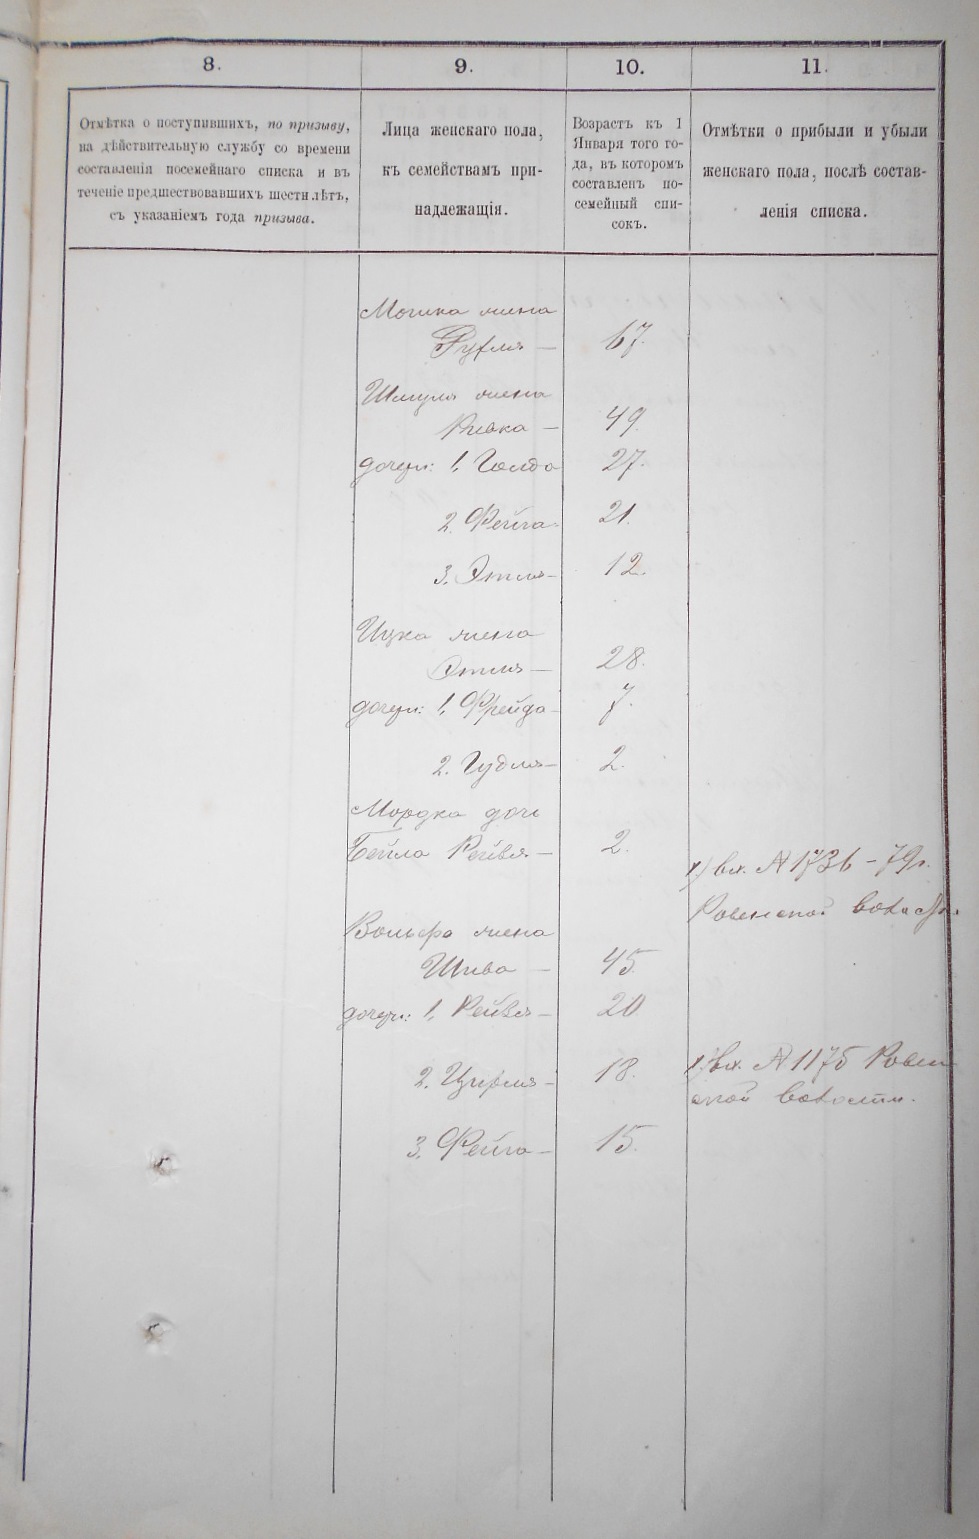 8.
9.
10.
11.
Отмѣтка о поступившихъ, по призыву,
на дѣйствительную службу со времени
составленія посемейнаго списка и въ
теченіе предшествовавшихъ шести лѣтъ,
съ указаніемъ года призыва.
Лица женскаго пола,
къ семействамъ при-
надлежащія.
Возрастъ къ 1
Января того го-
да, въ которомъ
составленъ по-
семейный спи-
сокъ.
Отмѣтки о прибыли и убыли
женскаго пола, послѣ состав-
ленія списка.
Мошка жена
Рухля — 67.
Шмуля жена
Ривка — 49.
дочери: 1, Голда 27.
2. Фейга - 21.
3. Этля - 12.
Ицка жена
Этля — 28.
дочери: 1, Фрейда - 7.
2. Гудля — 2.
Мордка дочь
Бейла Рейвя — 2.
вх. № 1736 - 79г.
Ровенской волости.
Вольфа жена
Шива — 45.
дочери: 1, Рейвя — 20
2. Цирля - 18.
вх. № 1175 Ровен
ской волости.
3. Фейга — 15.